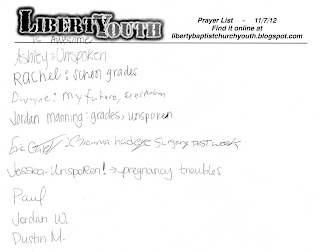 LIBERTY YOUTH
Prayer List - 11/7/12
Find it online at
libertybaptistchurchyouth.blogspot.com
is awesome
Ashley: Unspoken
Rachel: School grades
Dwayne: my future,
Jordan Manning: grades, unspoken
Eric Surgery
Jessica-Unspoken! → pregnancy troubles
Paul
Jordan W.
Dustin M.